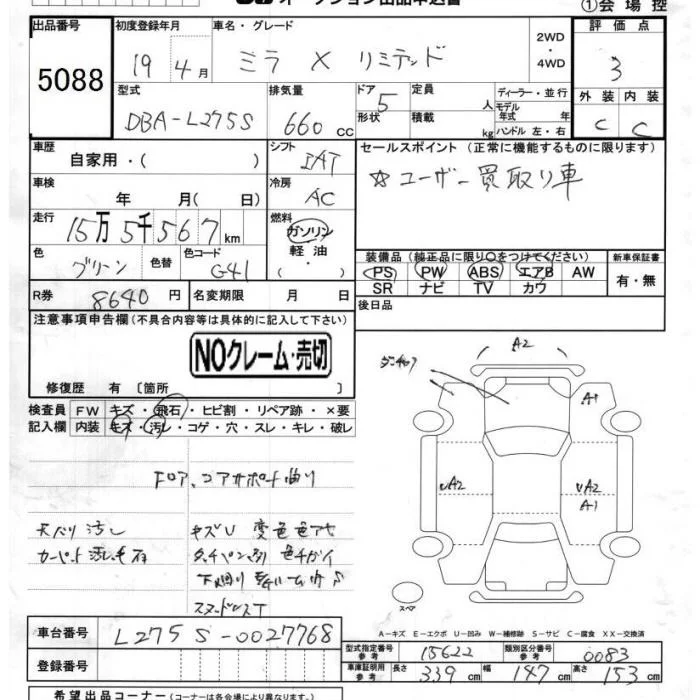 ①会場控
出品番号 初度登録年月 車名・グレード 評価点
5088 19年4月 ミラ X リミテッド 2WD・4WD 3
型式 排気量 ドア 定員 ディーラー・並行 外装 内装
DBA-L275S 660cc 5 人 モデル年式 年 C C
形状 積載 kg ハンドル 左・右
車歴 シフト セールスポイント(正常に機能するものに限ります)
自家用・( ) IAT ☆ユーザー買取り車
車検 冷房
年 月( 日) AC
走行 燃料
15万5千567km ガソリン・軽油・
色 色替 色コード 装備品(純正品に限り○をつけてください) 新車保証書
グリーン G41 PS PW ABS エアB AW 有・無
SR ナビ TV カワ
R券 8640円 名変期限 月 日 後日品
注意事項申告欄(不具合内容等は具体的に記入して下さい)
NOクレーム・売切
修復歴 有〔箇所 〕
検査員 FW キズ・飛石・ヒビ割・リペア跡・×要
記入欄 内装 キズ・汚レ・コゲ・穴・スレ・キレ・破レ
A2
A1
A2 A2
A1
スペア
コアサポート曲り
天バリ汚レ キズU
カーペット
A-キズ E-エクボ U-凹み W-補修跡 S-サビ C-腐食 XX-交換済
車台番号 L275S-0027768
型式指定番号参考 15622 類別区分番号参考 0083
登録番号 車庫証明用参考 長さ 339cm 幅 147cm 高さ 153cm
希望出品コーナー(コーナーは各会場により異なります)